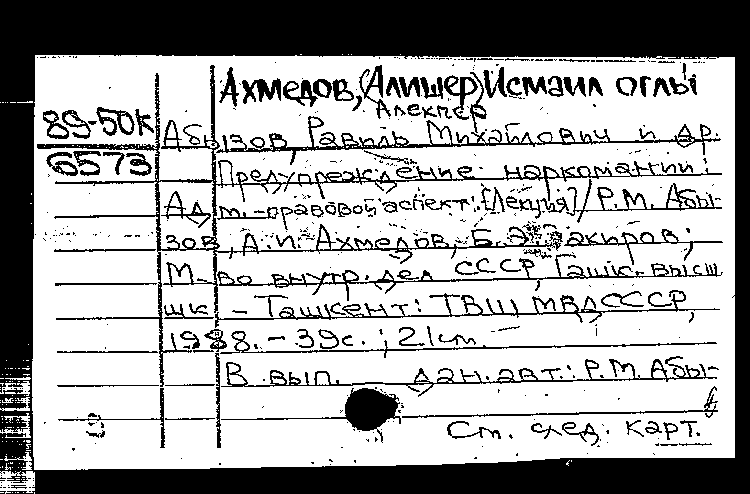 Ахмедов, (Алишер) Исмаил оглы
Алекпер
89-50к
6573
Абызов, Равиль Михайлович и др.
Предупреждение наркомании:
Адм.-правовой аспект: [Лекция] / Р.М. Абы-
зов, А.И. Ахмедов, Б.Э. Закиров;
М-во внутр. дел СССР, Ташк. высш
шк - Ташкент: ТВШ МВД СССР,
1988. - 39с.; 21см.
В вып. дан. авт.: Р.М. Абы-
См. след. карт.